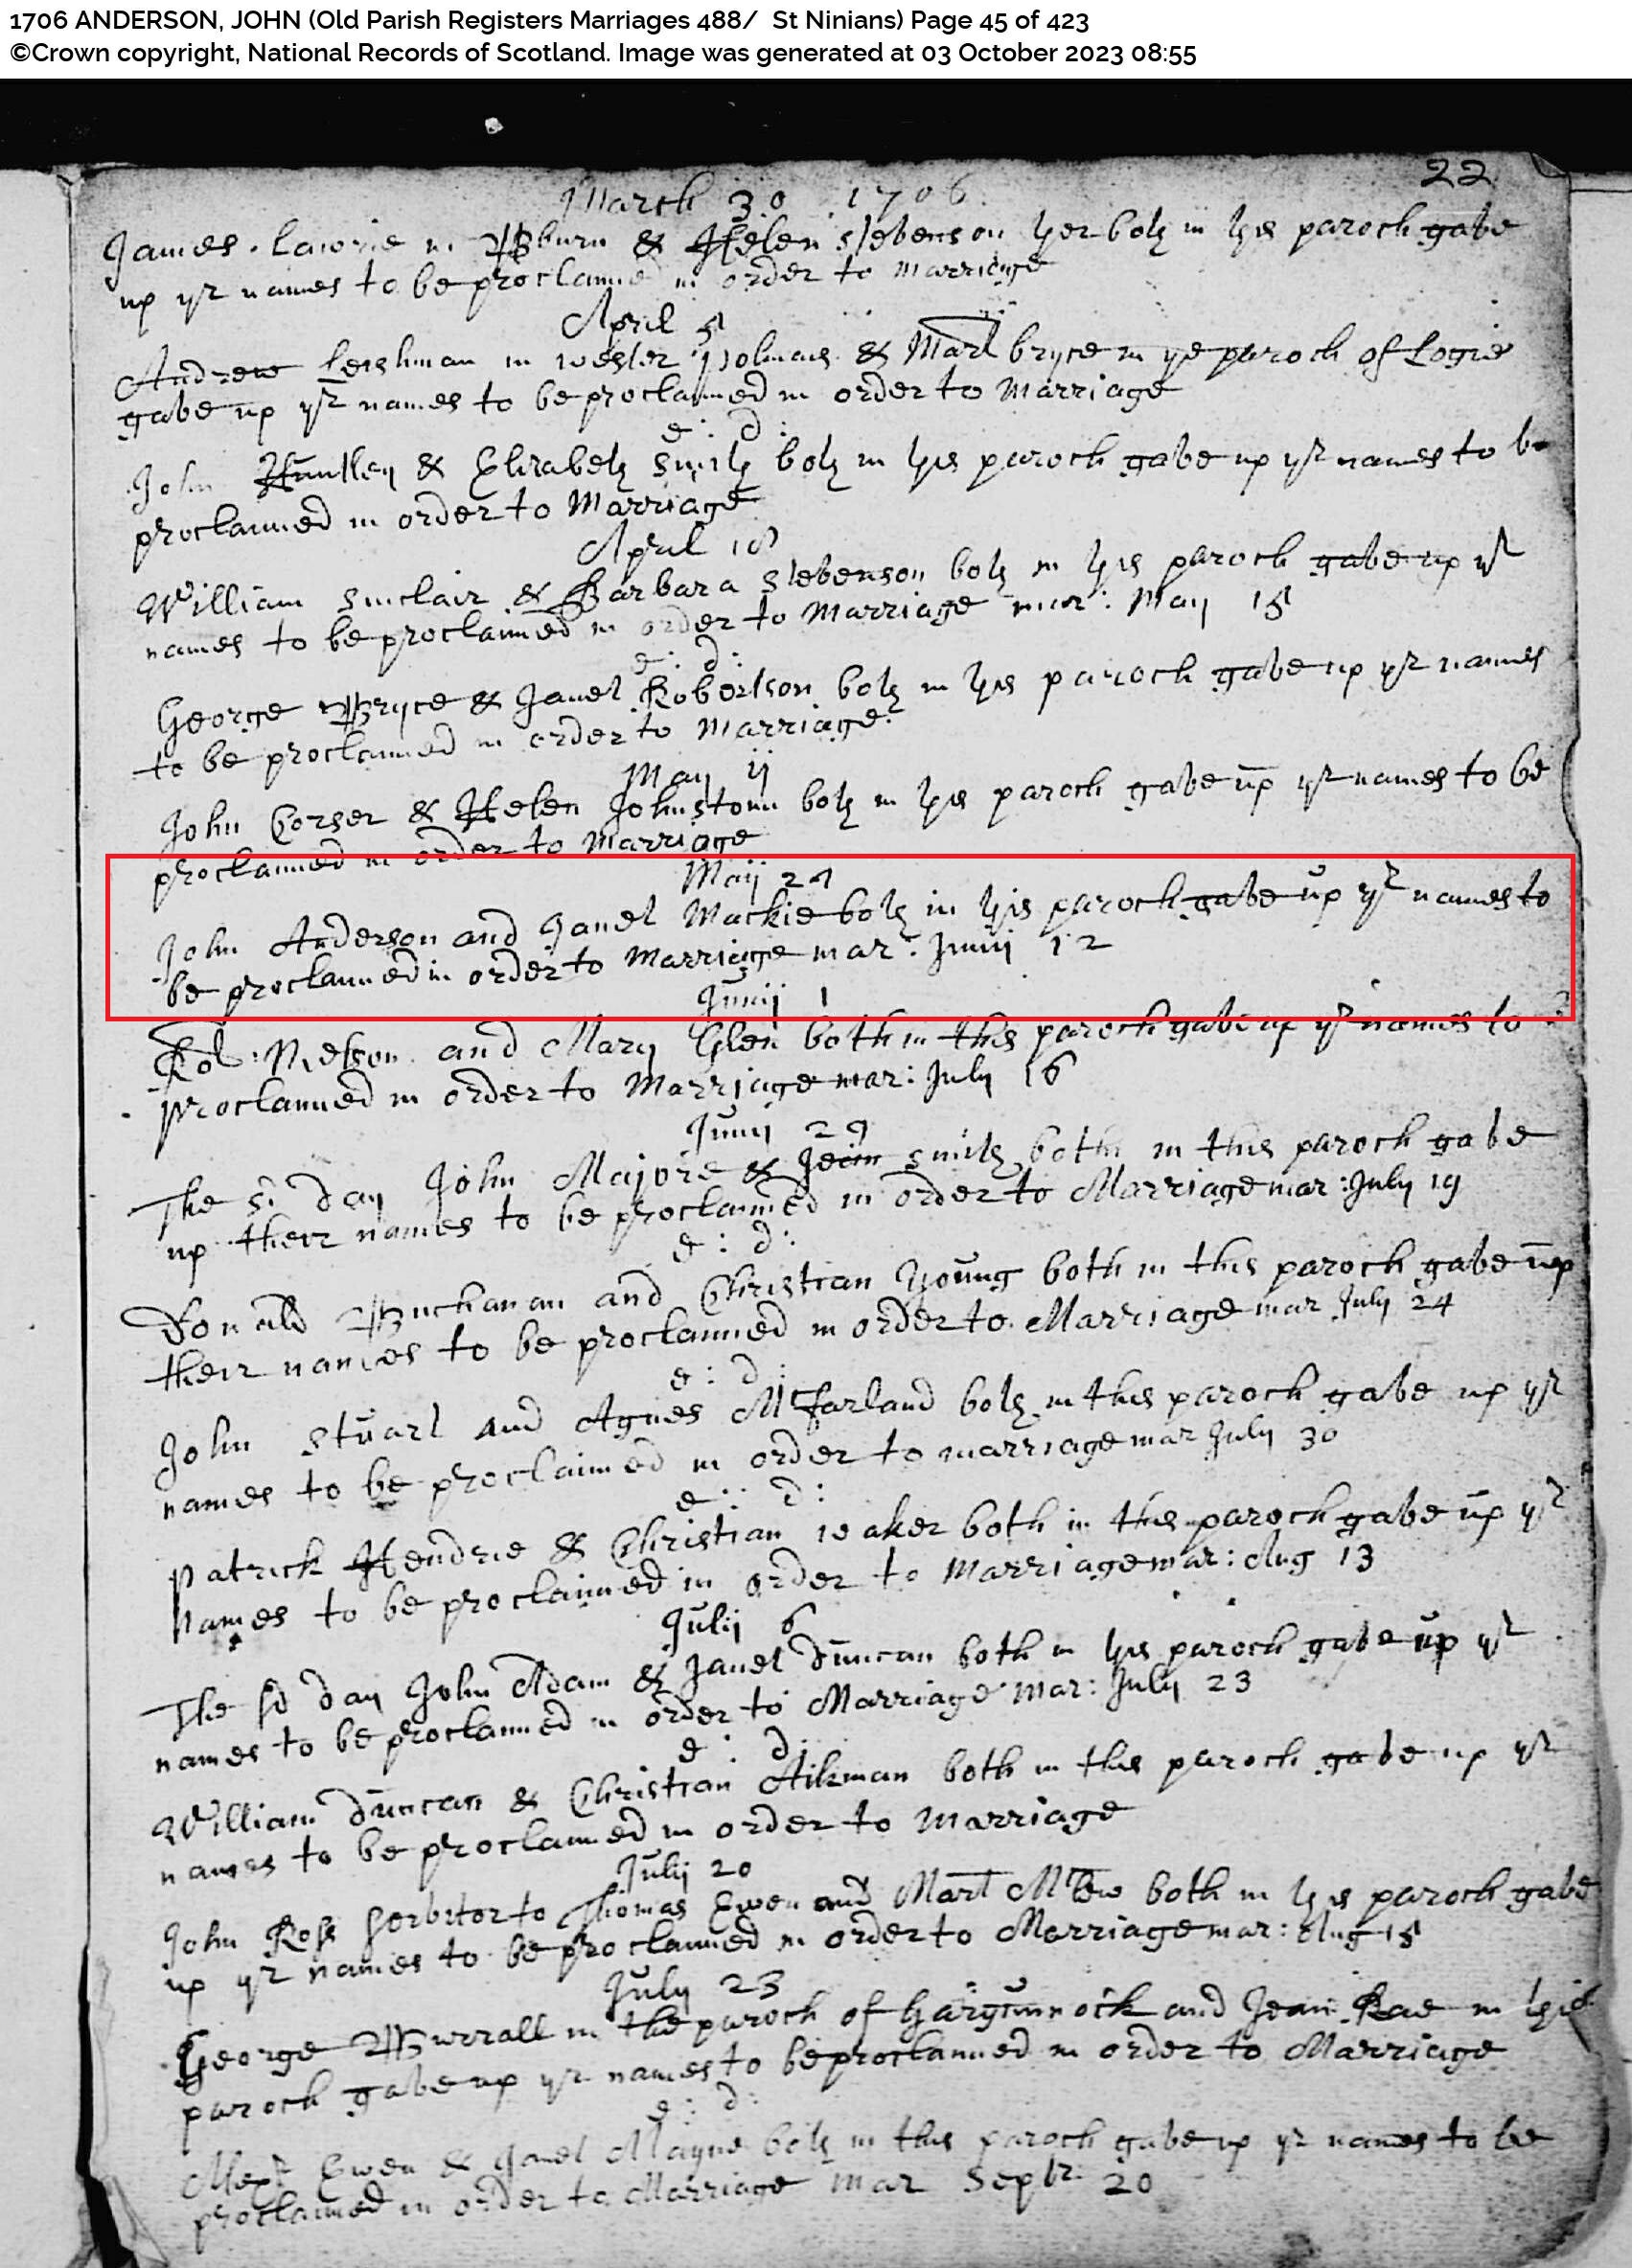 1706 ANDERSON, JOHN (Old Parish Registers Marriages 488/ St Ninians) Page 45 of 423
©Crown copyright, National Records of Scotland. Image was generated at 03 October 2023 08:55
22
March 30 1706
James Lawrie in & Helen Stevenson both in this paroch gave
up yr names to be proclaimed in order to marriage
April 5
Andrew Leishman in wester polmais & Mart bryce in ye paroch of Logie
gave up yr names to be proclaimed in order to Marriage
e: d:
John Huntley & Elizabeth Smith both in this paroch gave up yr names to be
proclaimed in order to Marriage
April
William Sinclair & Barbara Stevenson both in this paroch gave up yr
names to be proclaimed in order to Marriage mar: May 15
e: d:
George Bryce & Janet Robertson both in this paroch gave up yr names
to be proclaimed in order to Marriage
May ij
John Corser & Helen Johnstoun both in this paroch gave up yr names to be
proclaimed in order to Marriage
Maij
John Anderson and Janet Mackie both in this paroch gave up yr names to
be proclaimed in order to Marriage mar: Junij 12
Junij 1
Rob: and Mary Glen both in this paroch gave up yr names to
proclaimed in order to Marriage mar: July 16
Junij 29
The sd day John Majore & Jean Smith both in this paroch gave
up their names to be proclaimed in order to Marriage mar: July 19
e: d:
Donald Buchanan and Christian Young both in this paroch gave up
their names to be proclaimed in order to Marriage mar July 24
e: d:
John Stuart and Agnes McFarland both in this paroch gave up yr
names to be proclaimed in order to marriage mar July 30
e: d:
Patrick Hendrie & Christian both in this paroch gave up yr
names to be proclaimed in order to Marriage mar: Aug 13
Julij 6
The sd day John Adam & Janet Duncan both in this paroch gave up yr
names to be proclaimed in order to Marriage mar: July 23
e: d:
William Duncan & Christian Aikman both in this paroch gave up yr
names to be proclaimed in order to Marriage
Julij 20
John Ross servitor to Thomas Ewen and Mart both in this paroch gave
up yr names to be proclaimed in order to Marriage mar: Aug 15
July 23
George in the paroch of Gargunnock and Jean Rae in this
paroch gave up yr names to be proclaimed in order to Marriage
e: d:
Alexr Ewen & Janet Mayne both in this paroch gave up yr names to be
proclaimed in order to Marriage mar Septr 20